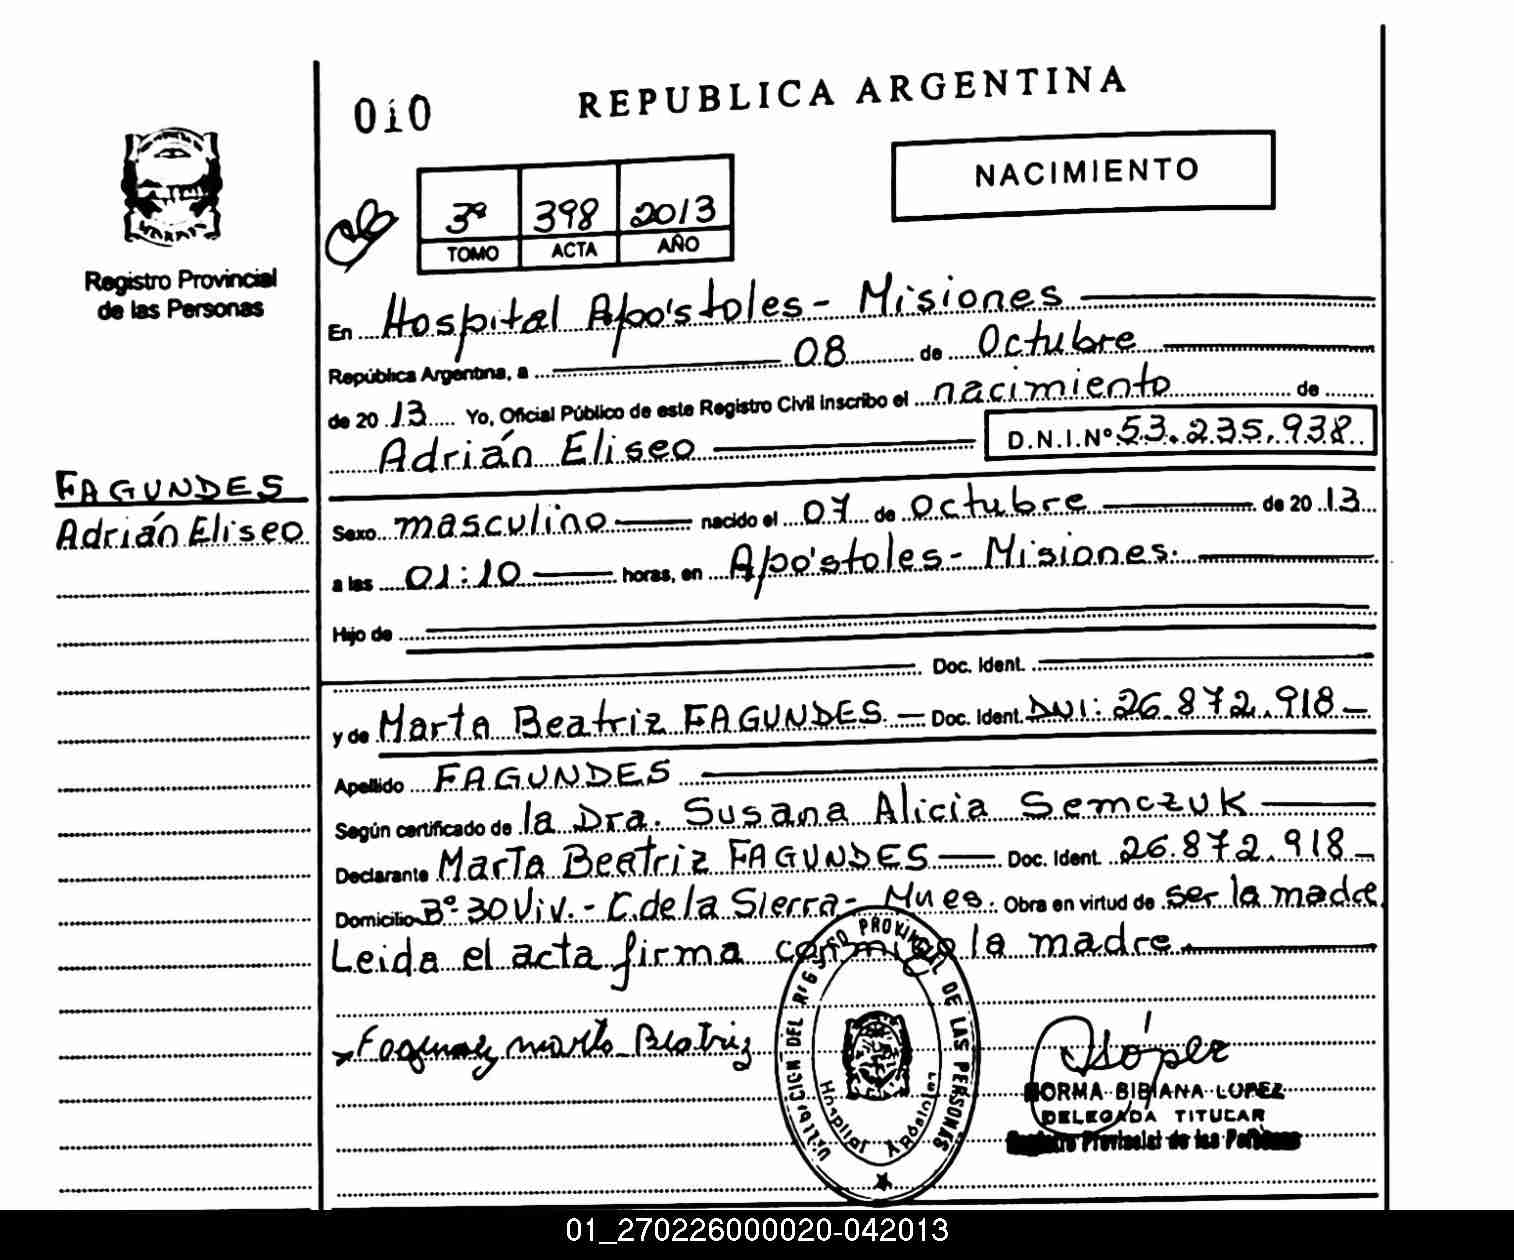 010
REPUBLICA ARGENTINA
NACIMIENTO
3º 398 2013
TOMO ACTA AÑO
Registro Provincial
de las Personas
En Hospital Apóstoles - Misiones
República Argentina, a 08 de Octubre
de 2013 Yo, Oficial Público de este Registro Civil inscribo el nacimiento de
Adrián Eliseo D.N.I.Nº 53.235.938
FAGUNDES
Adrián Eliseo
Sexo masculino nacido el 07 de octubre de 2013
a las 01:10 horas, en Apóstoles - Misiones.
Hijo de
Doc. Ident.
y de Marta Beatriz FAGUNDES - Doc. Ident. DNI: 26.872.918-
Apellido FAGUNDES
Según certificado de la Dra. Susana Alicia Semczuk
Declarante Marta Beatriz FAGUNDES Doc. Ident. 26.872.918-
Domicilio Bº 30 Viv. - C. de la Sierra - Mnes. Obra en virtud de ser la madre.
Leida el acta firma conmigo la madre
Fagundez Marta Beatriz
PROVINCIAL DE LAS PERSONAS
Hospital Apóstoles
López
NORMA BIBIANA LOPEZ
DELEGADA TITULAR
Registro Provincial de las Personas
01_270226000020-042013